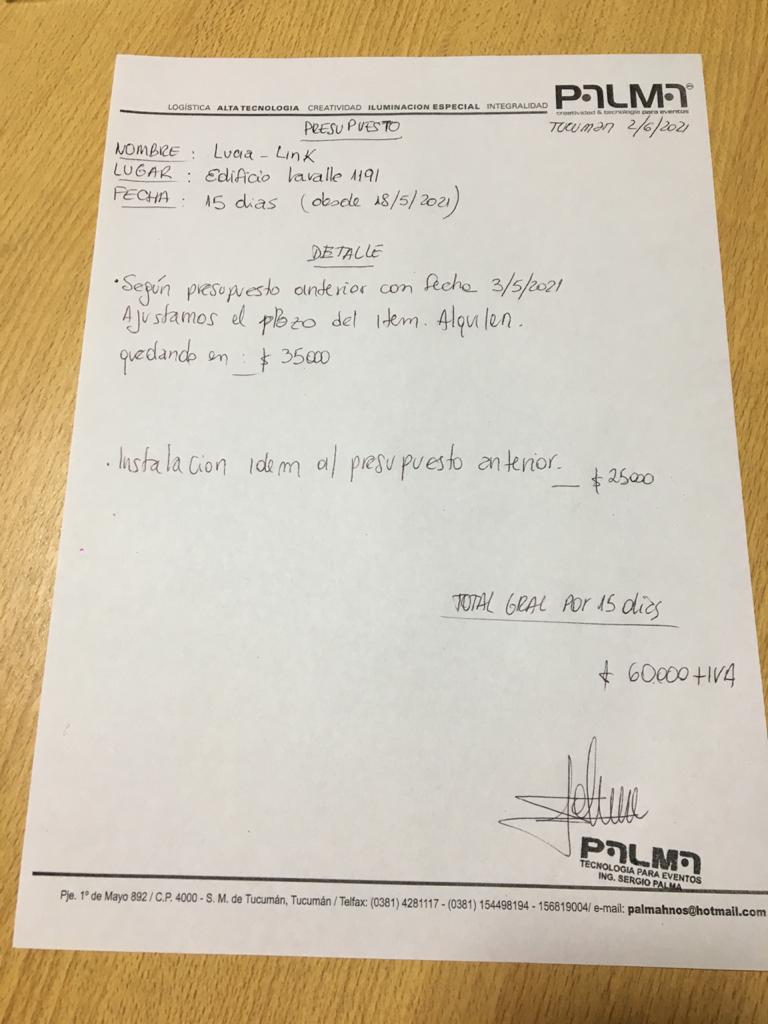 LOGÍSTICA ALTA TECNOLOGIA CREATIVIDAD ILUMINACION ESPECIAL INTEGRALIDAD
PALMA
creatividad & tecnología para eventos
PRESUPUESTO
Tucuman 2/6/2021
NOMBRE : Lucia - Link
LUGAR : Edificio Lavalle 1191
FECHA : 15 dias (desde 18/5/2021)
DETALLE
• Según presupuesto anterior con fecha 3/5/2021
Ajustamos el plazo del item. Alquiler.
quedando en : _ $ 35.000
• Instalacion idem al presupuesto anterior. _ $ 25000
TOTAL GRAL POR 15 dias
$ 60.000 + IVA
PALMA
TECNOLOGIA PARA EVENTOS
ING. SERGIO PALMA
Pje. 1º de Mayo 892 / C.P. 4000 - S. M. de Tucumán, Tucumán / Telfax: (0381) 4281117 - (0381) 154498194 - 156819004/ e-mail: palmahnos@hotmail.com